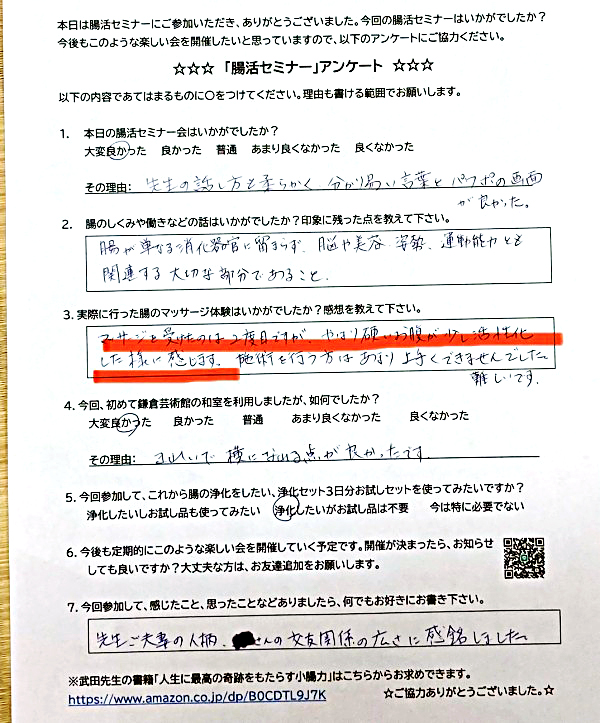 本日は腸活セミナーにご参加いただき、ありがとうございました。今回の腸活セミナーはいかがでしたか?
今後もこのような楽しい会を開催したいと思っていますので、以下のアンケートにご協力ください。
☆☆☆ 「腸活セミナー」アンケート ☆☆☆
以下の内容であてはまるものに〇をつけてください。理由も書ける範囲でお願いします。
1. 本日の腸活セミナー会はいかがでしたか?
大変良かった 良かった 普通 あまり良くなかった 良くなかった
その理由: 先生の話し方も柔らかく、分かり易い言葉とパワポの画面
が良かった。
2. 腸のしくみや働きなどの話はいかがでしたか?印象に残った点を教えて下さい。
腸が単なる消化器官に留まらず、脳や美容、姿勢、運動能力とも
関連する大切な部分であること、
3. 実際に行った腸のマッサージ体験はいかがでしたか?感想を教えて下さい。
マサージを受けたのは2度目ですが、やはり硬いお腹が少し活性化
した様に感じます。施術を行う方はあまり上手くできませんでした
難しいです。
4. 今回、初めて鎌倉芸術館の和室を利用しましたが、如何でしたか?
大変良かった 良かった 普通 あまり良くなかった 良くなかった
その理由: きれいで横になれる点が良かったです。
5. 今回参加して、これから腸の浄化をしたい、浄化セット3日分お試しセットを使ってみたいですか?
浄化したいしお試し品も使ってみたい 浄化したいがお試し品は不要 今は特に必要でない
6. 今後も定期的にこのような楽しい会を開催していく予定です。開催が決まったら、お知らせ
しても良いですか?大丈夫な方は、お友達追加をお願いします。
7. 今回参加して、感じたこと、思ったことなどありましたら、何でもお好きにお書き下さい。
先生ご夫妻の人柄、さんの交友関係の広さに感銘しました
※武田先生の書籍「人生に最高の奇跡をもたらす小腸力」はこちらからお求めできます。
https://www.amazon.co.jp/dp/B0CDTL9J7K ☆ご協力ありがとうございました。☆